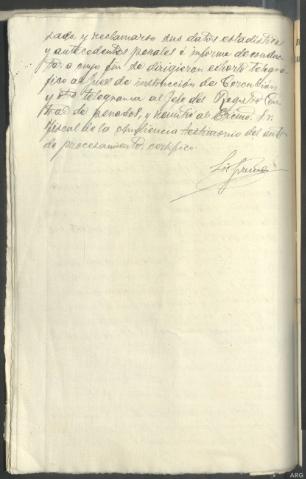 sada y reclamarse sus datos estadisticos
y antecedentes penales é informe de conduc-
ta, a cuyo fin se dirigieron exhorto telegra-
fico al Juez de instrucción de
y telegrama al Jefe del Registro Cen-
tral de penados, y remitió al Excmo. Sr.
Fiscal de la Audiencia testimonio del auto
de procesamiento, certifico.
ARG